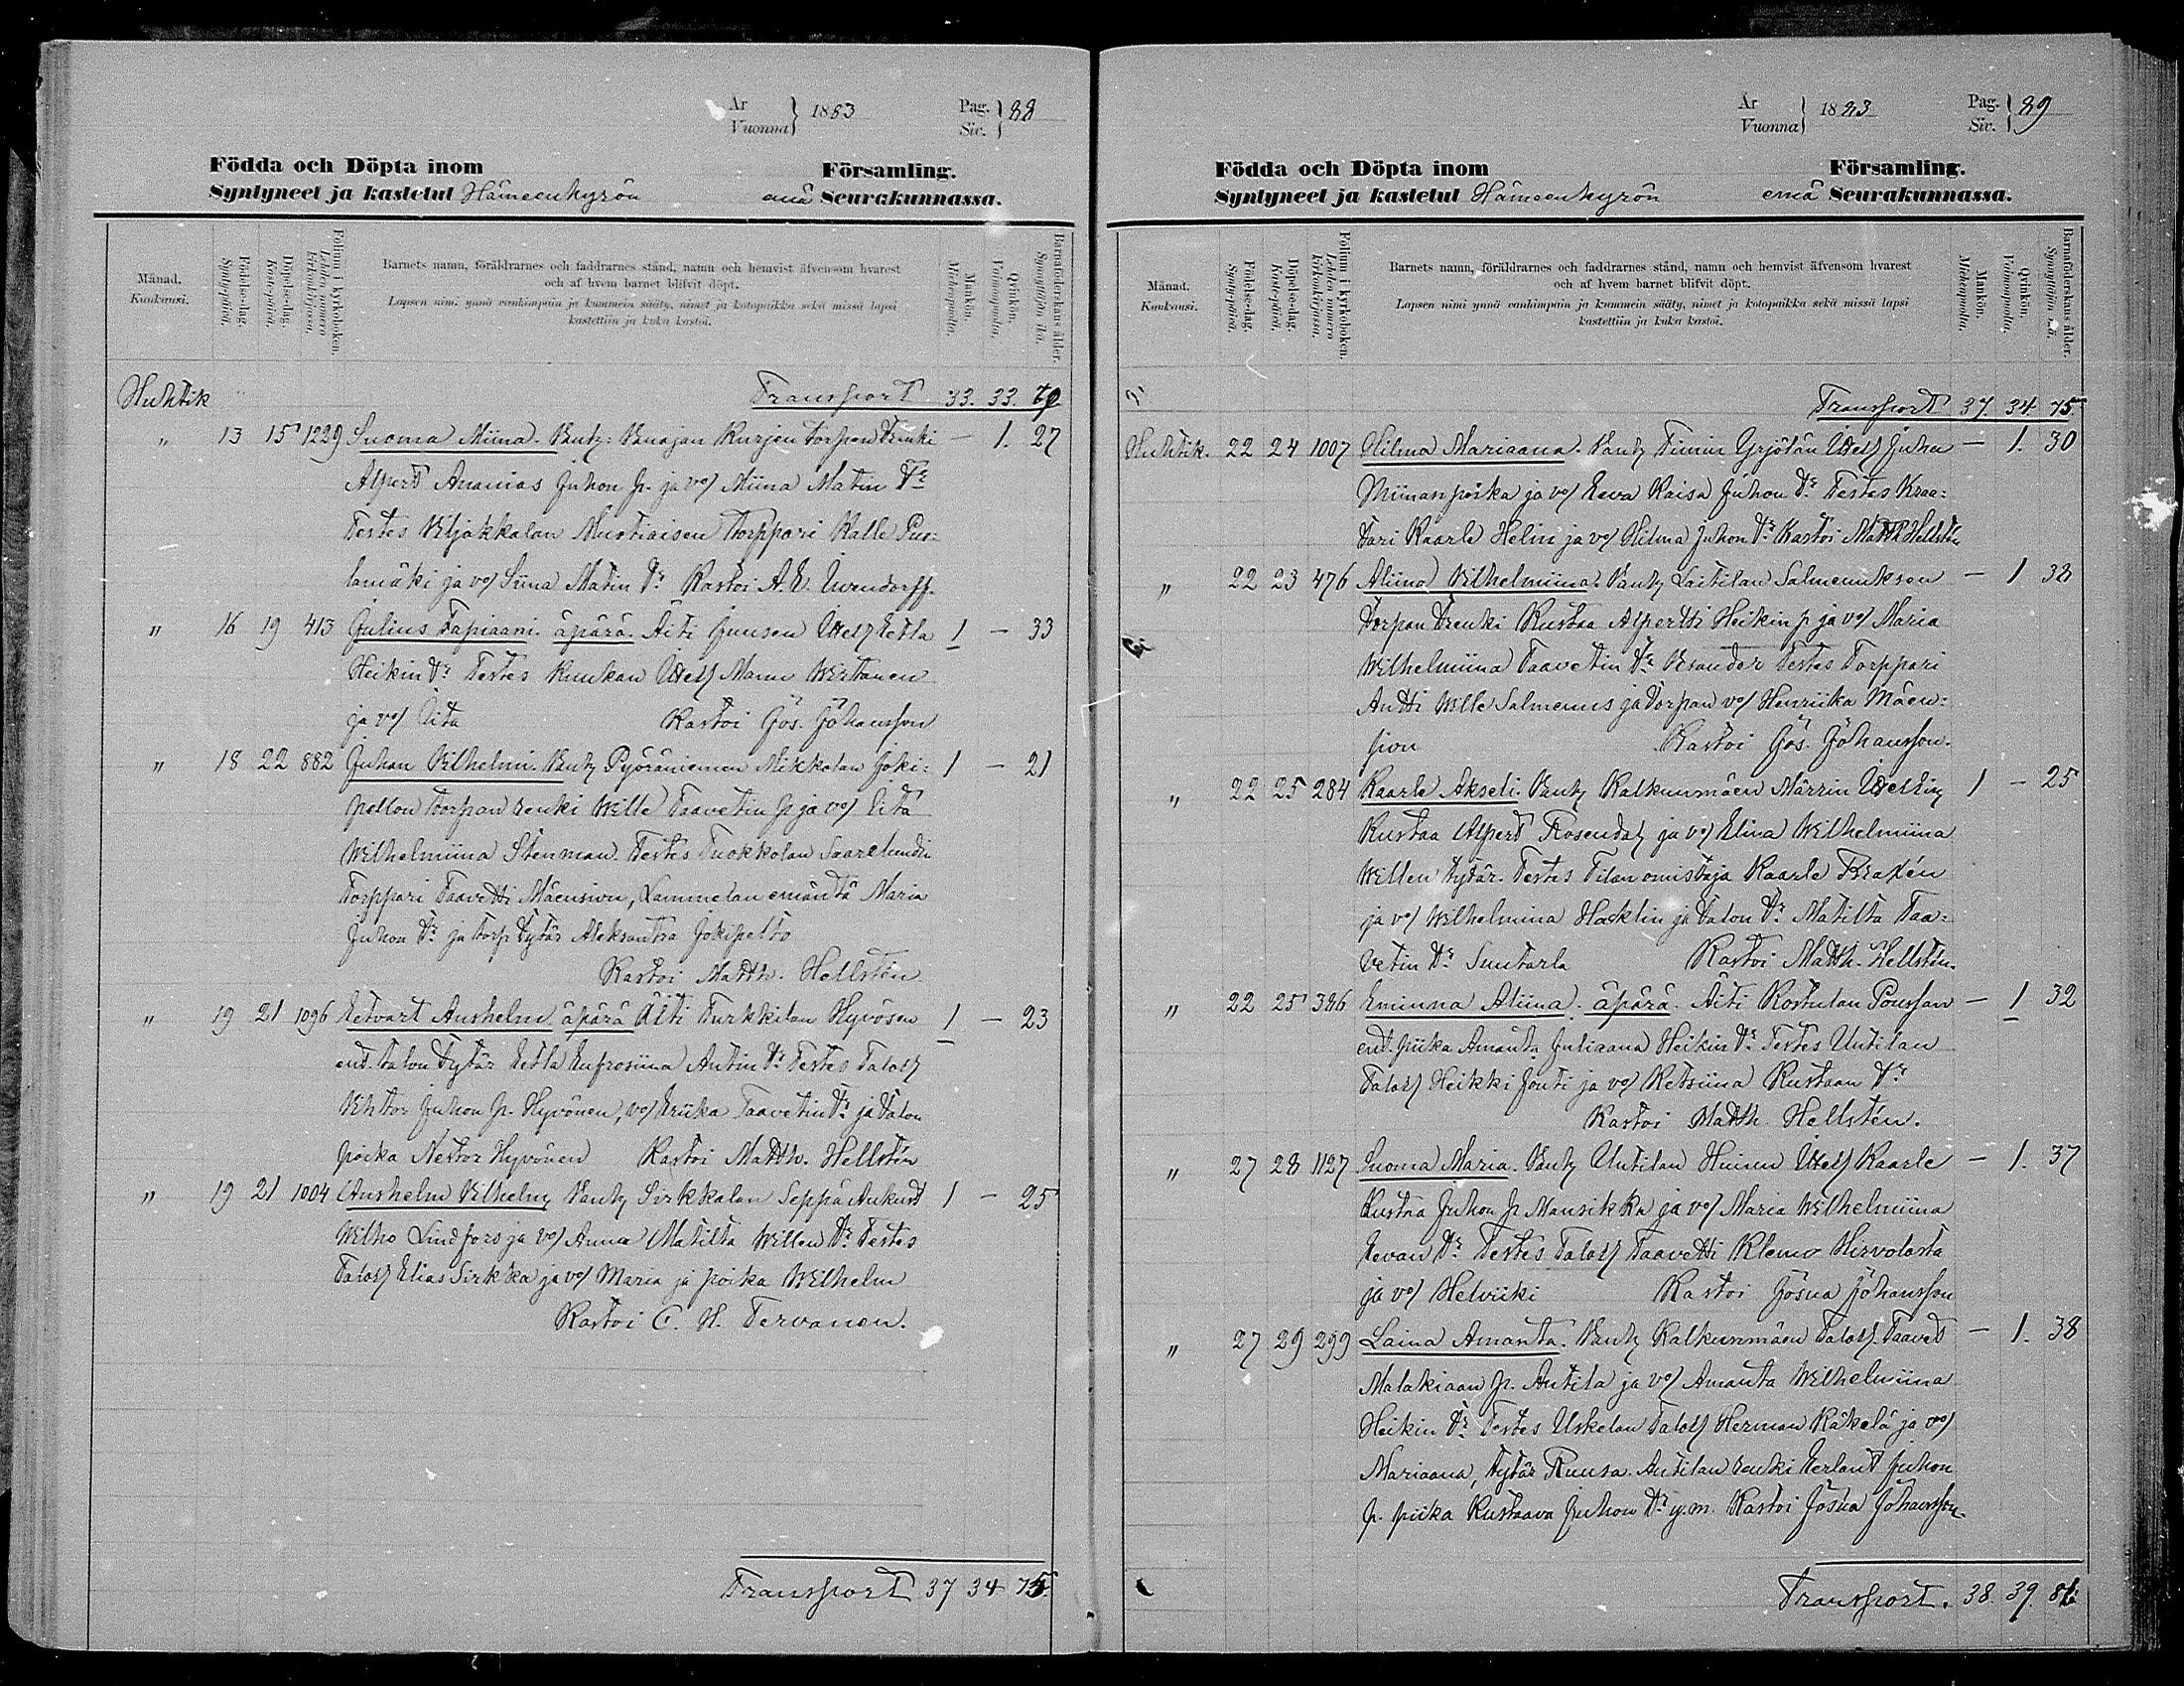 År
Vuonna } 1883 Pag.
Siv. } 88
Födda och Döpta inom Församling.
Syntyneet ja kastetut Hämeenkyrön emä Seurakunnassa.
Månad.
Kuukausi.
Födelse-dag.
Syntypäivä.
Döpelse-dag.
Kastepäivä.
Folium i kyrkoboken.
Lehden numero kirkonkirjassa.
Barnets namn, föräldrarnes och faddrarnes stånd, namn och hemvist äfvensom hvarest
och af hvem barnet blifvit döpt.
Lapsen nimi ynnä vanhimpain ja kummein sääty, nimet ja kotopaikka sekä missä lapsi
kastettiin ja kuka kastoi.
Mankön.
Miehenpuolia.
Qvinkön.
Vaimonpuolia.
Barnaföderskans ålder.
Synnyttäjän ikä.
Huhtik Transport 33. 33.
" 13 15 1229 Suoma Miina. Vanh: Vanajan Kurjen torpan Renki — 1. 27
Alpert Ananias Juhon p. ja vo/ Miina Matin Tr
Testes Viljakkalan Mustiaisen Torppari Kalle Puo-
lamäki ja vo/ Siina Matin Tr Kastoi A. E.
" 16 19 413 Julius Tapiaani. äpärä. Äiti Juusen Itsell Eetla 1 — 33
Heikin Tr Testes Kuukan Itsell Manu Wirtanen
ja vo/ Kastoi Jos. Johansson
" 18 22 882 Juhan Vilhelmi. Vanh Pyöräniemen Mikkolan Joki- 1 — 21
pellon torpan renki Wille Taavetin p ja vo/ Eeta
Wilhelmiina Stenman. Testes Tuokkolan Saarelundin
Torppari Taavetti Mäensivu, Lammelan emäntä Maria
Juhon Tr ja torp Tytär Aleksantra Jokipelto
Kastoi Matth. Hellstén
" 19 21 1096 Eetvart Anshelm. äpärä Äiti Turkkilan Hyvösen 1 — 23
ent. talon Tytär Eetla Eufrosiina Antin Tr Testes Taloll
Vihtor Juhon p. Hyvönen, vo/ Eriika Taavetin Tr ja Talon
poika Nestor Hyvönen Kastoi Matth. Hellstén
" 19 21 1004 Anshelm Vilhelm Vanh Sirkkalan Seppä Aukust 1 — 25
Wilho Lindfors ja vo/ Anna Matilta Willen Tr Testes
Taloll Elias Sirkka ja vo/ Maria ja poika Wilhelm
Kastoi C. H. Tervanen.
Transport 37 34 75.
År
Vuonna } 1883 Pag.
Siv. } 89
Födda och Döpta inom Församling.
Syntyneet ja kastetut Hämeenkyrön emä Seurakunnassa.
Månad.
Kuukausi.
Födelse-dag.
Syntypäivä.
Döpelse-dag.
Kastepäivä.
Folium i kyrkoboken.
Lehden numero kirkonkirjassa.
Barnets namn, föräldrarnes och faddrarnes stånd, namn och hemvist äfvensom hvarest
och af hvem barnet blifvit döpt.
Lapsen nimi ynnä vanhimpain ja kummein sääty, nimet ja kotopaikka sekä missä lapsi
kastettiin ja kuka kastoi.
Mankön.
Miehenpuolia.
Qvinkön.
Vaimonpuolia.
Barnaföderskans ålder.
Synnyttäjän ikä.
Transport 37 34 75
Huhtik. 22 24 1007 Hilma Mariaana. Vanh Timin Yrjölän Itsell Juha — 1. 30
Miinanpoika ja vo/ Eeva Kaisa Juhon Tr Testes Kraa-
tari Kaarle Helin ja vo/ Hilma Juhon Tr Kastoi Matth Hellstén
" 22 23 476 Aliina Vilhelmiina. Vanh Laitilan Salmenuksen — 1 38
Torpan Renki Kustaa Alpertti Heikin p ja vo/ Maria
Wilhelmiina Taavetin Tr Vesander Testes Torppari
Antti Wille Salmenus ja torpan vo/ Henriika Mäen-
sivu Kastoi Jos. Johansson.
" 22 25 284 Kaarle Akseli. Vanh Kalkunmäen Märrin Itsellin 1 — 25
Kustaa Alpert Rosendal ja vo/ Elina Wilhelmiina
Willen tytär. Testes Tilan omistaja Kaarle
ja vo/ Wilhelmina Hacklin ja Talon Tr Matilta Taa-
vetin Tr Suutarla Kastoi Matth. Hellstén.
" 22 25 386 Eminna Aliina. äpärä. Äiti Kostulan Poussan — 1 32
ent. piika Amanta Juliaana Heikin Tr Testes Untilan
Taloll Heikki Jonti ja vo/ Retriina Kustaan Tr
Kastoi Matth Hellstén.
" 27 28 1127 Suoma Maria. Vanh Untilan Huinu Itsell Kaarle — 1. 37
Kustaa Juhon p Mansikka ja vo/ Maria Wilhelmiina
Eevan Tr Testes Taloll Taavetti Klemo Hirvolasta
ja vo/ Helviiki Kastoi Josua Johansson
" 27 29 299 Laina Amanta. Vanh Kalkunmäen Taloll Taavet — 1. 38
Malakiaan p. Antila ja vo/ Amanta Wilhelmiina
Heikin Tr Testes Uskelan Taloll Herman Käkelä ja vo/
Mariaana, tytär Ruusa. Antilan renki Eerlant Juhon
p. piika Kustaava Juhon Tr y.m. Kastoi Josua Johansson.
Transport. 38. 39. 81.